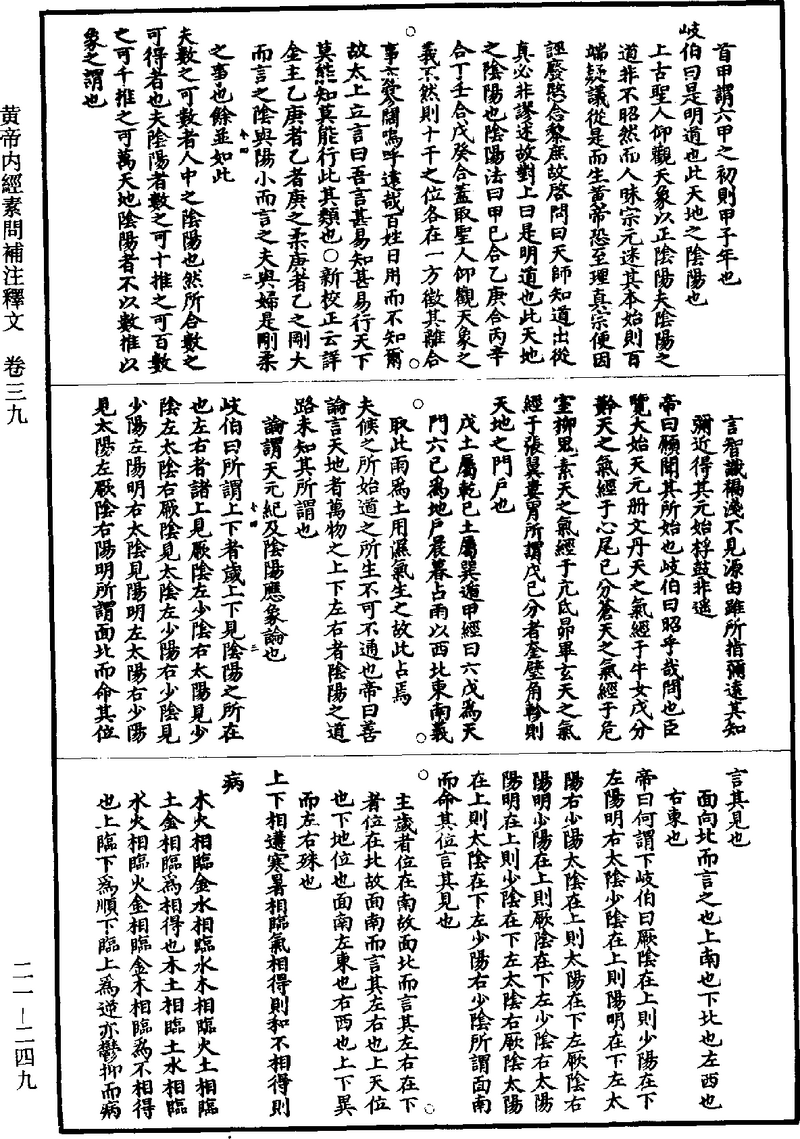 首甲謂六甲之初則甲子年也
岐伯曰是明道也此天地之陰陽也
上古聖人仰觀天象以正陰陽夫陰陽之
道非不昭然而人昧宗元迷其本始則百
端疑議從是而生黃帝恐至理真宗便因
誣廢愍念黎庶故啓問曰天師知道出從
真必非謬述故對上曰是明道也此天地
之陰陽也陰陽法曰甲己合乙庚合丙辛
合丁壬合戊癸合蓋取聖人仰觀天象之
義不然則十干之位各在一方徵其離合
事亦寥闊嗚呼遠哉百姓日用而不知爾
故太上立言曰吾言甚易知甚易行天下
莫能知莫能行此其類也○新校正云詳
金主乙庚者乙者庚之柔庚者乙之剛大
而言之陰與陽小而言之夫與婦是剛柔
之事也餘並如此
夫數之可數者人中之陰陽也然所合數之
可得者也夫陰陽者數之可十推之可百數
之可千推之可萬天地陰陽者不以數推以
象之謂也
言智識褊淺不見源由雖所指彌遠其知
彌近得其元始桴鼓非遙
帝曰願聞其所始也岐伯曰昭乎哉問也臣
覽大始天元册文丹天之氣經于牛女戊分
黅天之氣經于心尾已分蒼天之氣經于危
室柳鬼素天之氣經于亢氐昴畢玄天之氣
經于張翼婁胃所謂戊已分者奎壁角軫則
天地之門戶也
戊土屬乾己土屬巽遁甲經曰六戊爲天
門六己爲地戶晨暮占雨以西北東南義
取此雨爲土用濕氣生之故此占焉
夫候之所始道之所生不可不通也帝曰善
論言天地者萬物之上下左右者陰陽之道
路未知其所謂也
論謂天元紀及陰陽應象論也
岐伯曰所謂上下者歲上下見陰陽之所在
也左右者諸上見厥陰左少陰右太陽見少
陰左太陰右厥陰見太陰左少陽右少陰見
少陽左陽明右太陰見陽明左太陽右少陽
見太陽左厥陰右陽明所謂面北而命其位
言其見也
面向北而言之也上南也下北也左西也
右東也
帝曰何謂下岐伯曰厥陰在上則少陽在下
左陽明右太陰少陰在上則陽明在下左太
陽右少陽太陰在上則太陽在下左厥陰右
陽明少陽在上則厥陰在下左少陰右太陽
陽明在上則少陰在下左太陰右厥陰太陽
在上則太陰在下左少陽右少陰所謂面南
而命其位言其見也
主歲者位在南故面北而言其左右在下
者位在北故面南而言其左右也上天位
也下地位也面南左東也右西也上下異
而左右殊也
上下相遘寒暑相臨氣相得則和不相得則
病
木火相臨金水相臨水木相臨火土相臨
土金相臨爲相得也木土相臨土水相臨
水火相臨火金相臨金木相臨爲不相得
也上臨下爲順下臨上爲逆亦鬱抑而病
黄帝内經素問補注釋文　卷三九
二一—二四九